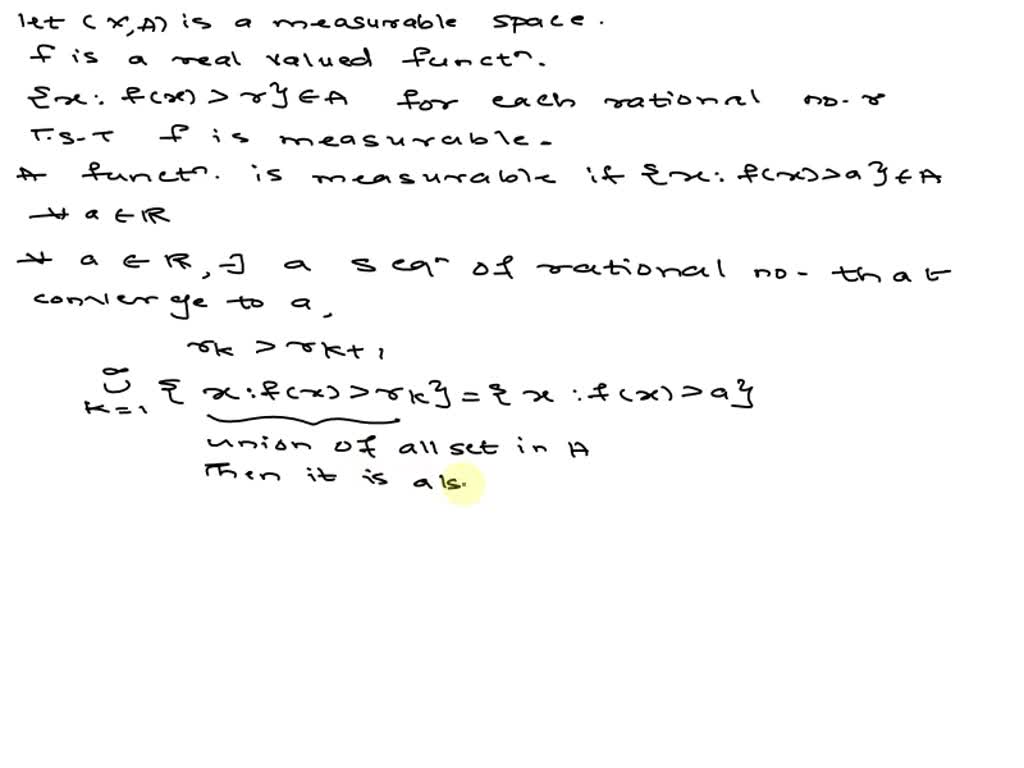 let (X,A) is a measurable space.
f is a real valued functⁿ.
{x: f(x) > r} ∈ A for each rational no. r
T.S.T f is measurable.
A functⁿ. is measurable if {x: f(x) > a} ∈ A
∀ a ∈ ℝ
∀ a ∈ ℝ, ∃ a seqⁿ of rational no. that
converge to a,
rk > rk+1
∞ ∪ k=1 {x: f(x) > rk} = {x : f(x) > a}
union of all set in A
Then it is als.